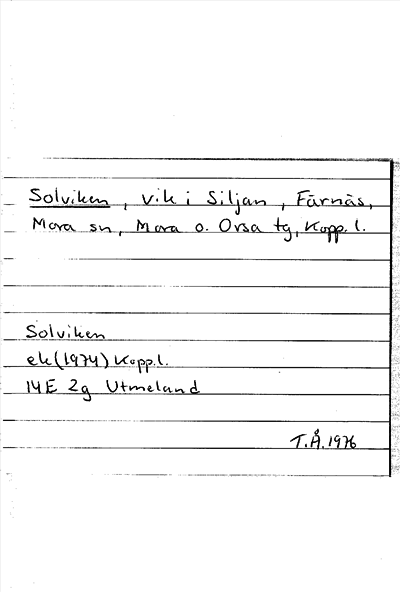 Solviken, vik i Siljan, Färnäs,
Mora sn, Mora o. Orsa tg, Kopp. l.
Solviken
ek (1974) Kopp.l.
14E 2g Utmeland
T.Å. 1976